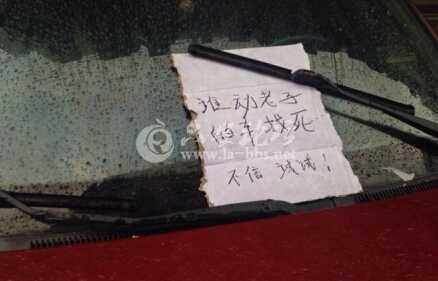 谁动老子
的车找死
不信 试试！
www.la-bbs.net